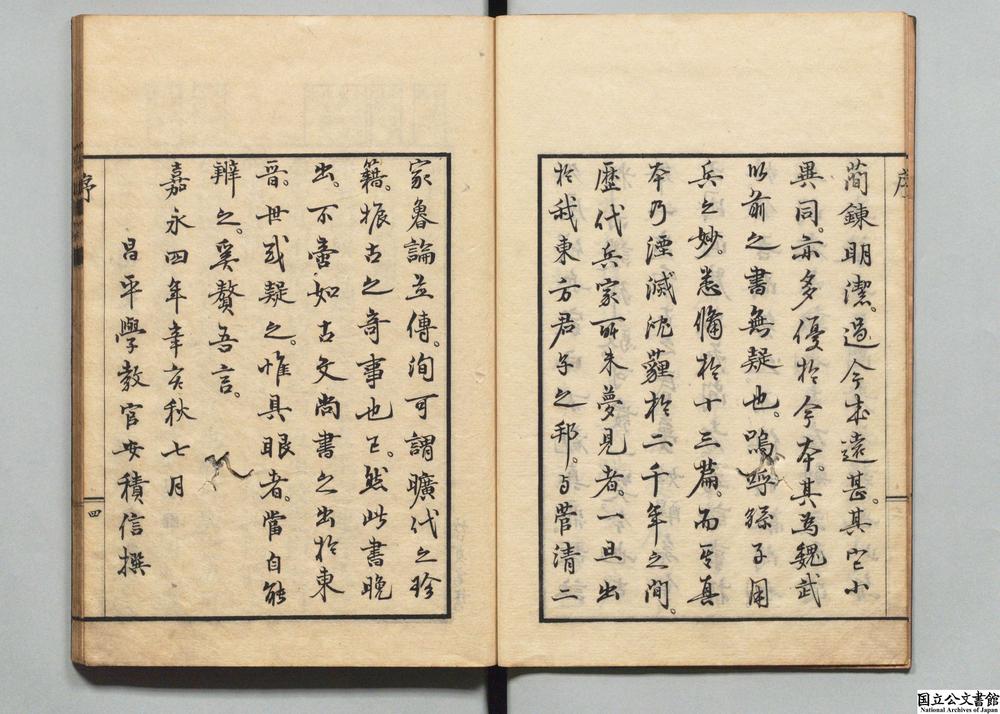 序
簡錬明潔。過今本遠甚。其它小
異同。亦多優於今本。其為魏武
以前之書無疑也。嗚呼孫子用
兵之妙。悉備於十三篇。而其真
本乃湮滅沈薶於二千年之間。
歷代兵家所未夢見者。一旦出
於我東方君子之邦。與菅清二
家魯論並傳。洵可謂曠代之珍
籍。振古之奇事也已。然此書晚
出。不啻如古文尚書之出於東
晉。世或疑之。惟具眼者。當自能
辨之。奚贅吾言。
嘉永四年辛亥秋七月
昌平學教官安積信撰
序
四
国立公文書館
National Archives of Japan